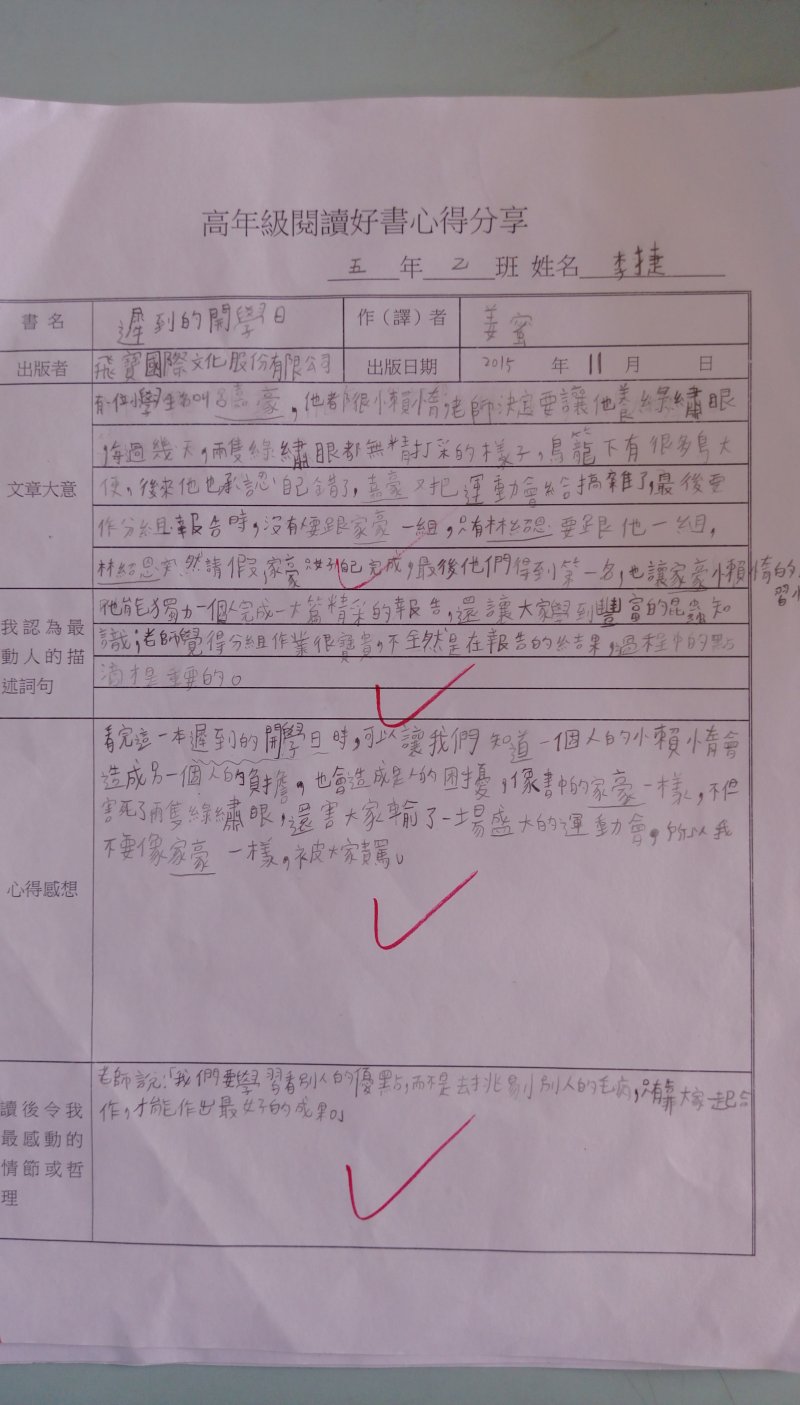 高年級閱讀好書心得分享
五 年 乙 班 姓名 李捷
書名 遲到的開學日 作(譯)者 姜蜜
出版者 飛寶國際文化股份有限公司 出版日期 2015 年 11 月 日
文章大意
有一位小學生名叫呂嘉豪,他都很小賴惰,老師決定要讓他養綠繡眼
,每過幾天,兩隻綠繡眼都無精打采的樣子,鳥籠下有很多鳥大
便,後來他也承認自己錯了,嘉豪又把運動會給搞雜了,最後要
作分組報告時,沒有人要跟家豪一組,只有林結恩要跟他一組,
林結恩突然請假,家豪只好自己完成,最後他們得到第一名,也讓家豪小賴惰的
我認為最動人的描述詞句
他能獨力一個人完成一大篇精采的報告,還讓大家學到豐富的昆蟲知
識;老師覺得分組作業很寶貴,不全然是在報告的結果,過程中的點
滴才是重要的。
心得感想
看完這一本遲到的開學日時,可以讓我們知道一個人的小賴惰會
造成另一個人的負擔,也會造成是人的困擾,像書中的家豪一樣,不但
害死了兩隻綠繡眼,還害大家輸了一場盛大的運動會,所以我
不要像家豪一樣,被大家責罵。
讀後令我最感動的情節或哲理
老師說:「我們要學習看別人的優點,而不是去挑剔別人的毛病,只有靠大家一起合
作,才能作出最好的成果。」